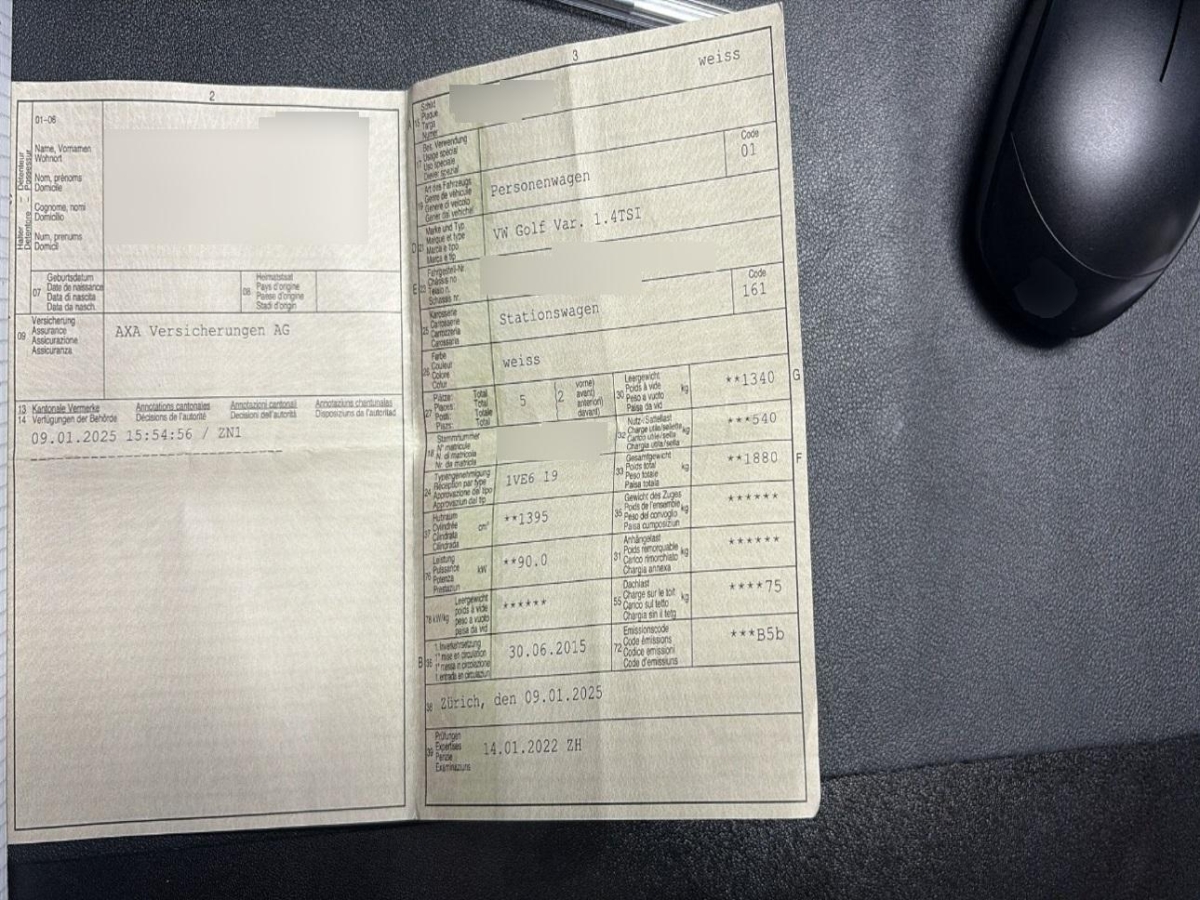 2
01-06
Name, Vornamen
Wohnort
Nom, prénoms
Domicile
Cognome, nomi
Domicilio
Num, prenums
Domicil
07 Geburtsdatum
Date de naissance
Data di nascita
Data da nasch.
08 Heimatstaat
Pays d'origine
Paese d'origine
Stadi d'origin
09 Versicherung
Assurance
Assicurazione
Assicuranza
AXA Versicherungen AG
13 Kantonale Vermerke Annotations cantonales Annotazioni cantonali Annotaziuns chantunalas
14 Verfügungen der Behörde Décisions de l'autorité Decisioni dell'autorità Disposiziuns da l'autoritad
09.01.2025 15:54:56 / ZN1
3
A 15 Schild
Plaque
Targa
Numer
weiss
17 Bes. Verwendung
Usage spécial
Uso speciale
Diever spezial
19 Art des Fahrzeugs
Genre de véhicule
Genere di veicolo
Gener dal vehichel
Personenwagen
Code
01
D 21 Marke und Typ
Marque et type
Marca e tipo
Marca e tip
VW Golf Var. 1.4TSI
E 23 Fahrgestell-Nr.
Châssis no
Telaio n.
Schassis nr.
25 Karosserie
Carrosserie
Carrozzeria
Carossaria
Stationswagen
Code
161
26 Farbe
Couleur
Colore
Colur
weiss
27 Plätze: Total
Places: Total
Posti: Totale
Plazs: Total
5
2 vorne)
avant)
anteriori)
davant)
30 Leergewicht
Poids à vide
Peso a vuoto
Paisa da vid
kg
**1340
G
18 Stammnummer
N° matricule
N. di matricola
Nr. da matricla
32 Nutz-/Sattellast
Charge utile/sellette
Carico utile/sella
Chargia utila/sella
kg
***540
24 Typengenehmigung
Réception par type
Approvazione del tipo
Approvaziun dal tip
1VE6 19
33 Gesamtgewicht
Poids total
Peso totale
Paisa totala
kg
**1880
F
37 Hubraum
Cylindrée
Cilindrata
Cilindrada
cm³
**1395
35 Gewicht des Zuges
Poids de l'ensemble
Peso del convoglio
Paisa cumposiziun
kg
******
76 Leistung
Puissance
Potenza
Prestaziun
kW
**90.0
31 Anhängelast
Poids remorquable
Carico rimorchiato
Chargia annexa
kg
******
78 kW/kg Leergewicht
poids à vide
peso a vuoto
paisa da vid
******
55 Dachlast
Charge sur le toit
Carico sul tetto
Chargia sin il tetg
kg
****75
B 36 1. Inverkehrsetzung
1re mise en circulation
1a messa in circolazione
1. entrada en circulaziun
30.06.2015
72 Emissionscode
Code émissions
Codice emissioni
Code d'emissiuns
***B5b
38 Zürich, den 09.01.2025
39 Prüfungen
Expertises
Perizie
Examinaziuns
14.01.2022 ZH